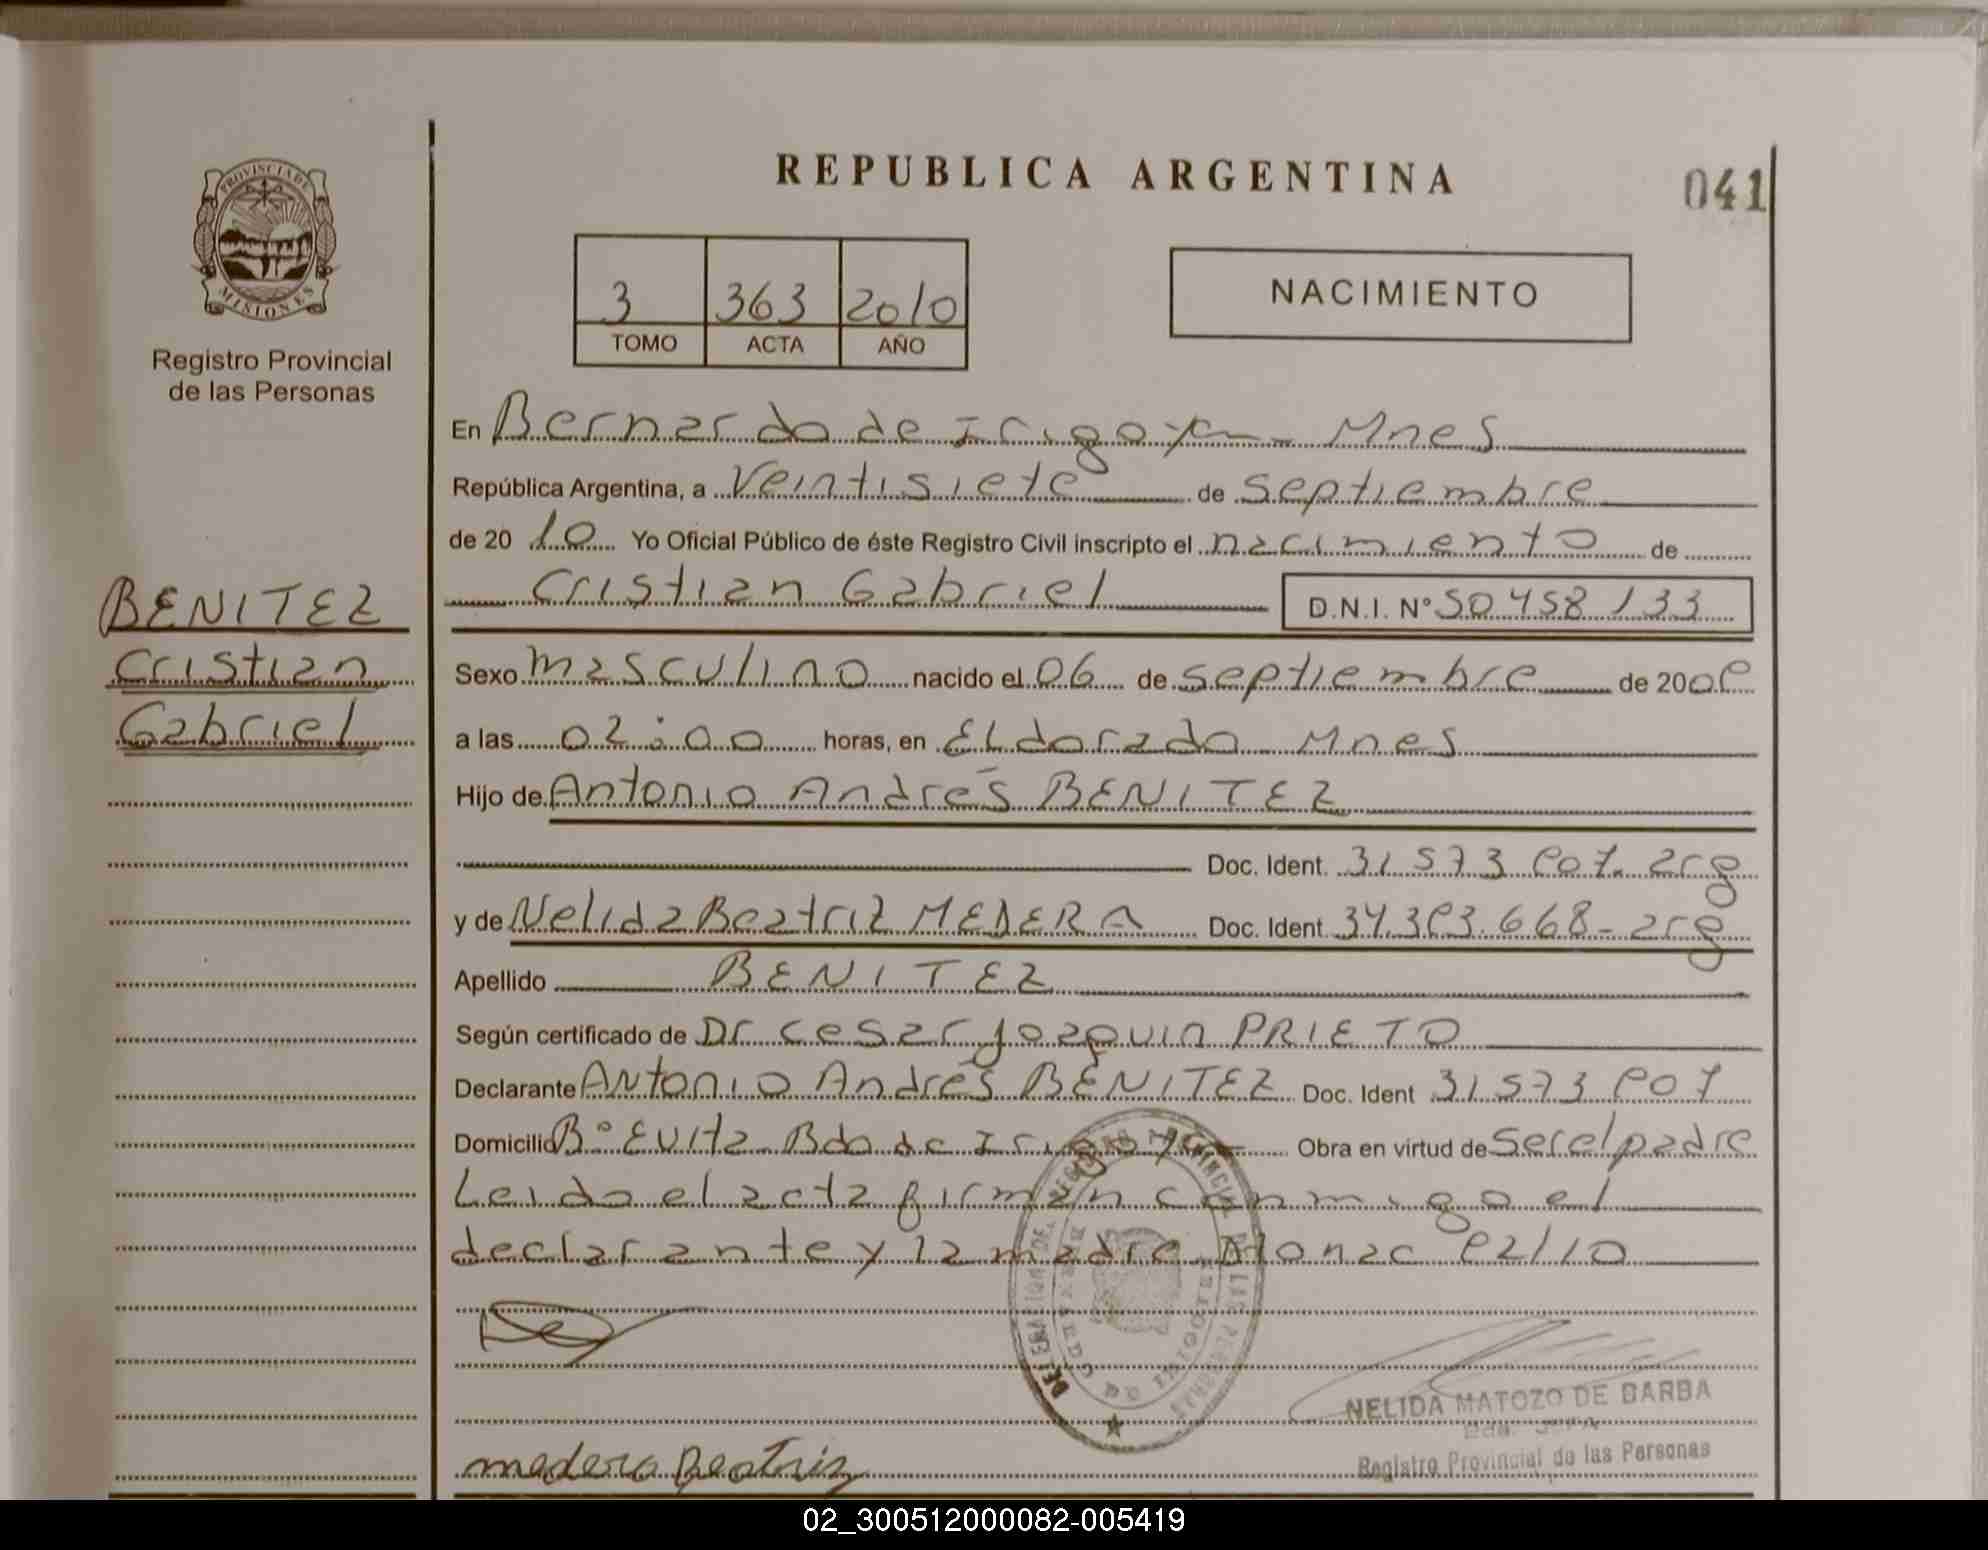 REPUBLICA ARGENTINA
041
PROVINCIA DE
MISIONES
Registro Provincial
de las Personas
3 363 2010
TOMO ACTA AÑO
NACIMIENTO
En Bernardo de Irigoyen - Mnes
República Argentina, a Veintisiete de Septiembre
de 20 10 Yo Oficial Público de éste Registro Civil inscripto el nacimiento de
Cristian Gabriel D.N.I. Nº 50458133
BENITEZ
Cristian
Gabriel
Sexo masculino nacido el 06 de septiembre de 20
a las 02:00 horas, en ELdorado Mnes
Hijo de Antonio Andrés BENITEZ
Doc. Ident. 31.573.807. arg
y de Nelida Beatriz MEDERA Doc. Ident. 34.383.668 - arg
Apellido BENITEZ
Según certificado de Dr. Cesar Joaquin PRIETO
Declarante Antonio Andrés BENITEZ Doc. Ident 31573807
Domicilio Bº Evita - Bdo de Irigoyen Obra en virtud de Ser el padre
Leido el acta firman conmigo el
declarante y la madre.
madera Beatriz
NELIDA MATOZO DE BARBA
Registro Provincial de las Personas
02_300512000082-005419